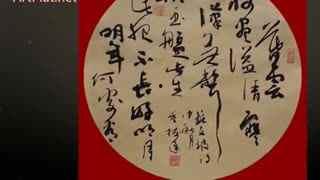 暮雲
收盡溢清寒
銀漢無聲
轉玉盤此生
此夜不長好明月
明年何處看
中秋月